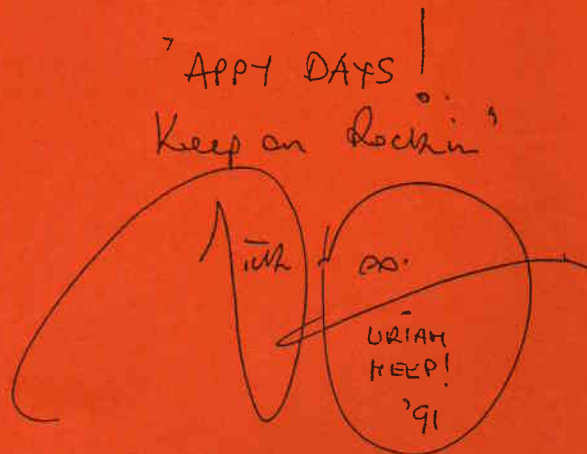 'APPY DAYS!
Keep on Rockin'
Mick
URIAH
HEEP!
'91